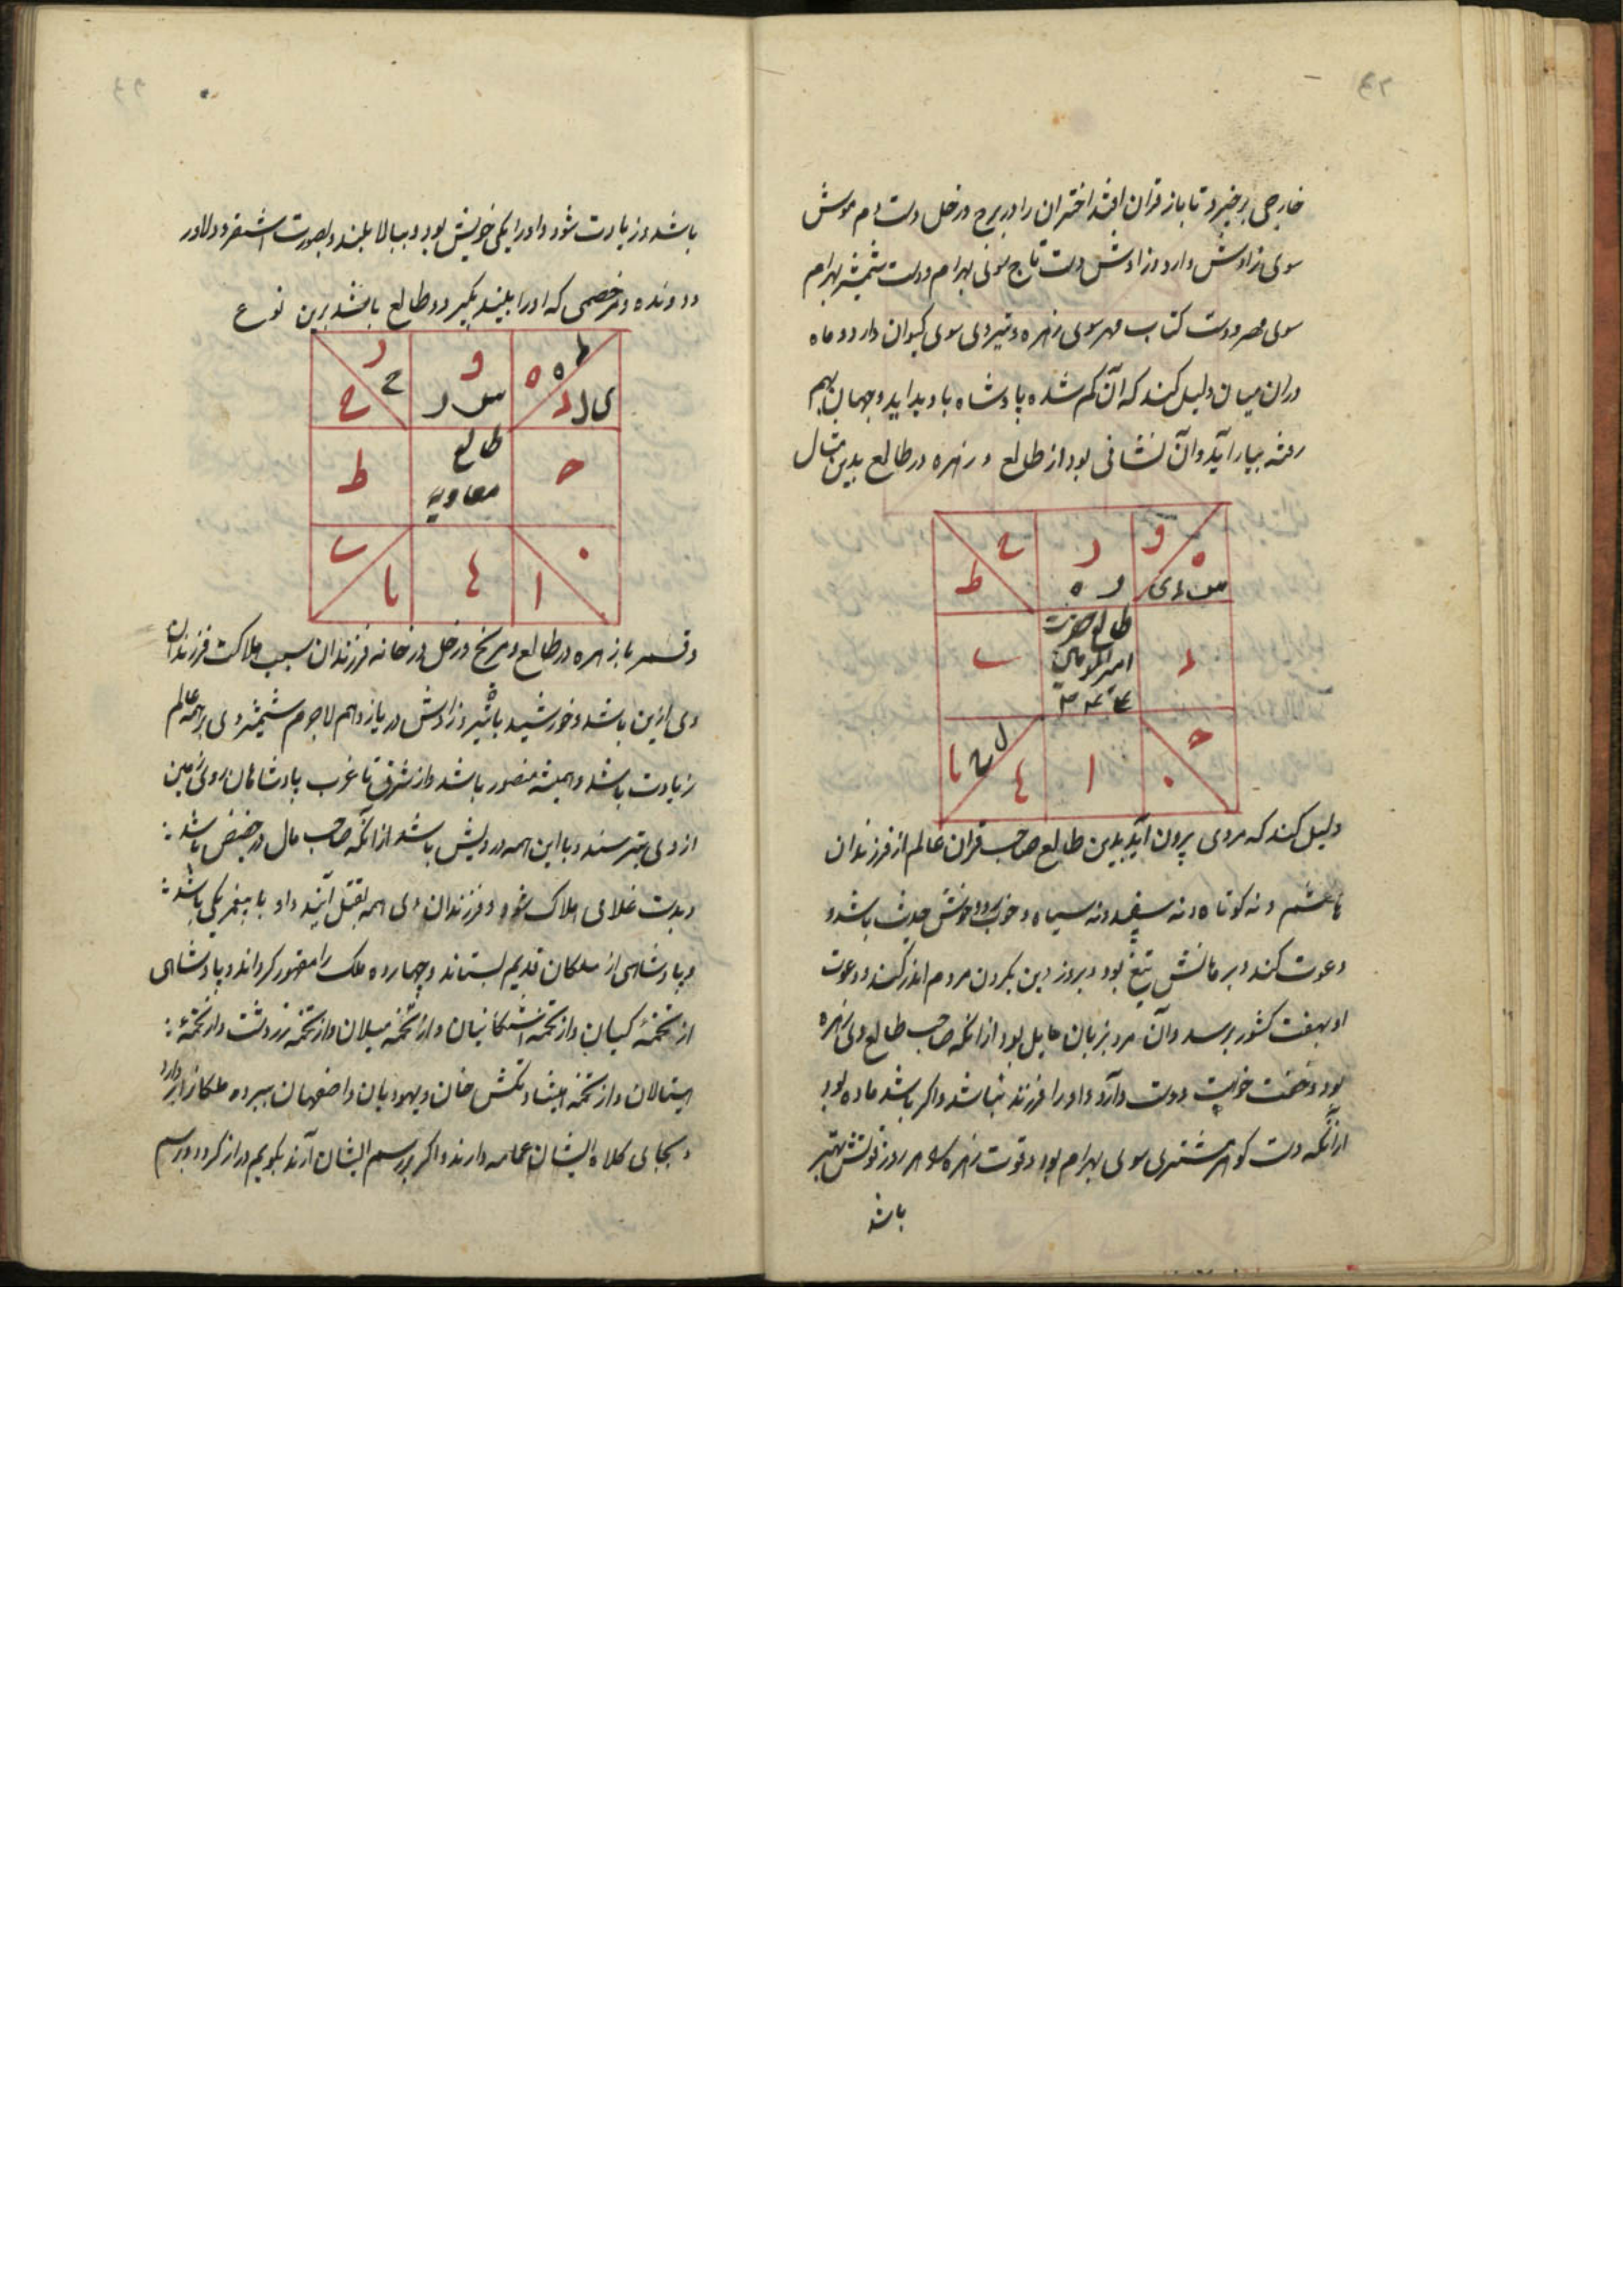 خارجی برخیزد تا باز قران افتد اختران را در برج و زحل دست دم موش
سوی زاوش دارد و زاوش دست تاج سوی بهرام و دست شمشیر بهرام
سوی مهر و دست کتاب مهر سوی زهره و تیر وی سوی کیوان دارد و ماه
دران میان دلیل کند که آن کم شده پادشاه با وید اید و جهان بهم
رفته بیاراید و آن نشانی بود از طالع و زهره در طالع بدین مثال
و ه
ح ط
ر
طالع حضرت
امیرالمومنین
ب
د
ا
دلیل کند که مردی بیرون آید بدین طالع صاحب قران عالم از فرزندان
هاشم و نه کوتاه و نه سپید و نه سیاه و خوب روی و خوش حدیث باشد و
دعوت کند و برهانش تیغ بود و بروز دین بکردن مردم اندر کند و دعوت
او بهفت کشور برسد و آن مرد بزنان مایل بود از انکه صاحب طالع وی زهره
بود و نخست خویش دوست دارد و او را فرزند نباشد و اکر باشد ماده بود
ازانکه دست کوهر مشتری سوی بهرام بود و قوت زهره هر روز قوتش بهتر
باشد
باشد و زیادت شود و او را یکی خویش بود ببالا بلند و بصورت اشقر و دلاور
و دونده و هر خصمی که او را ببیند بکیرد و طالع باشد برین نوع
ر
ح
و
ه
د
طالع
معاویه
ط
ب
یا
ا
و قمر با زهره در طالع و مریخ و زحل در خانه فرزندان سبب هلاکت فرزندان
وی ازین باشد و خورشید با تیر و زاوش در یازدهم لاجرم شمشیر وی بر همه عالم
زیادت باشد و همیشه منصور باشد و از شرق تا غرب پادشاهان روی زمین
از وی بترسند و با این همه درویش باشد از انکه صاحب مال در حضیض باشد
و بدست غلامی هلاک شود و فرزندان وی همه بقتل آیند و او با پیغمبر یکی باشد
و پادشاهی از ملکان قدیم بستاند و چهارده ملک را مقهور کرداند و پادشاهی
از تخمه کیان و از تخمه اشکانیان و از تخمه میلان و از تخمه زردشت و از تخمه
هیتالان و از تخمه و یهودیان و اصفهان ببرد و ملکان را بردارد
و بجای کلاه ایشان عمامه دارند و اکر بر رسم ایشان آرند بکویم دراز کردد و رسم